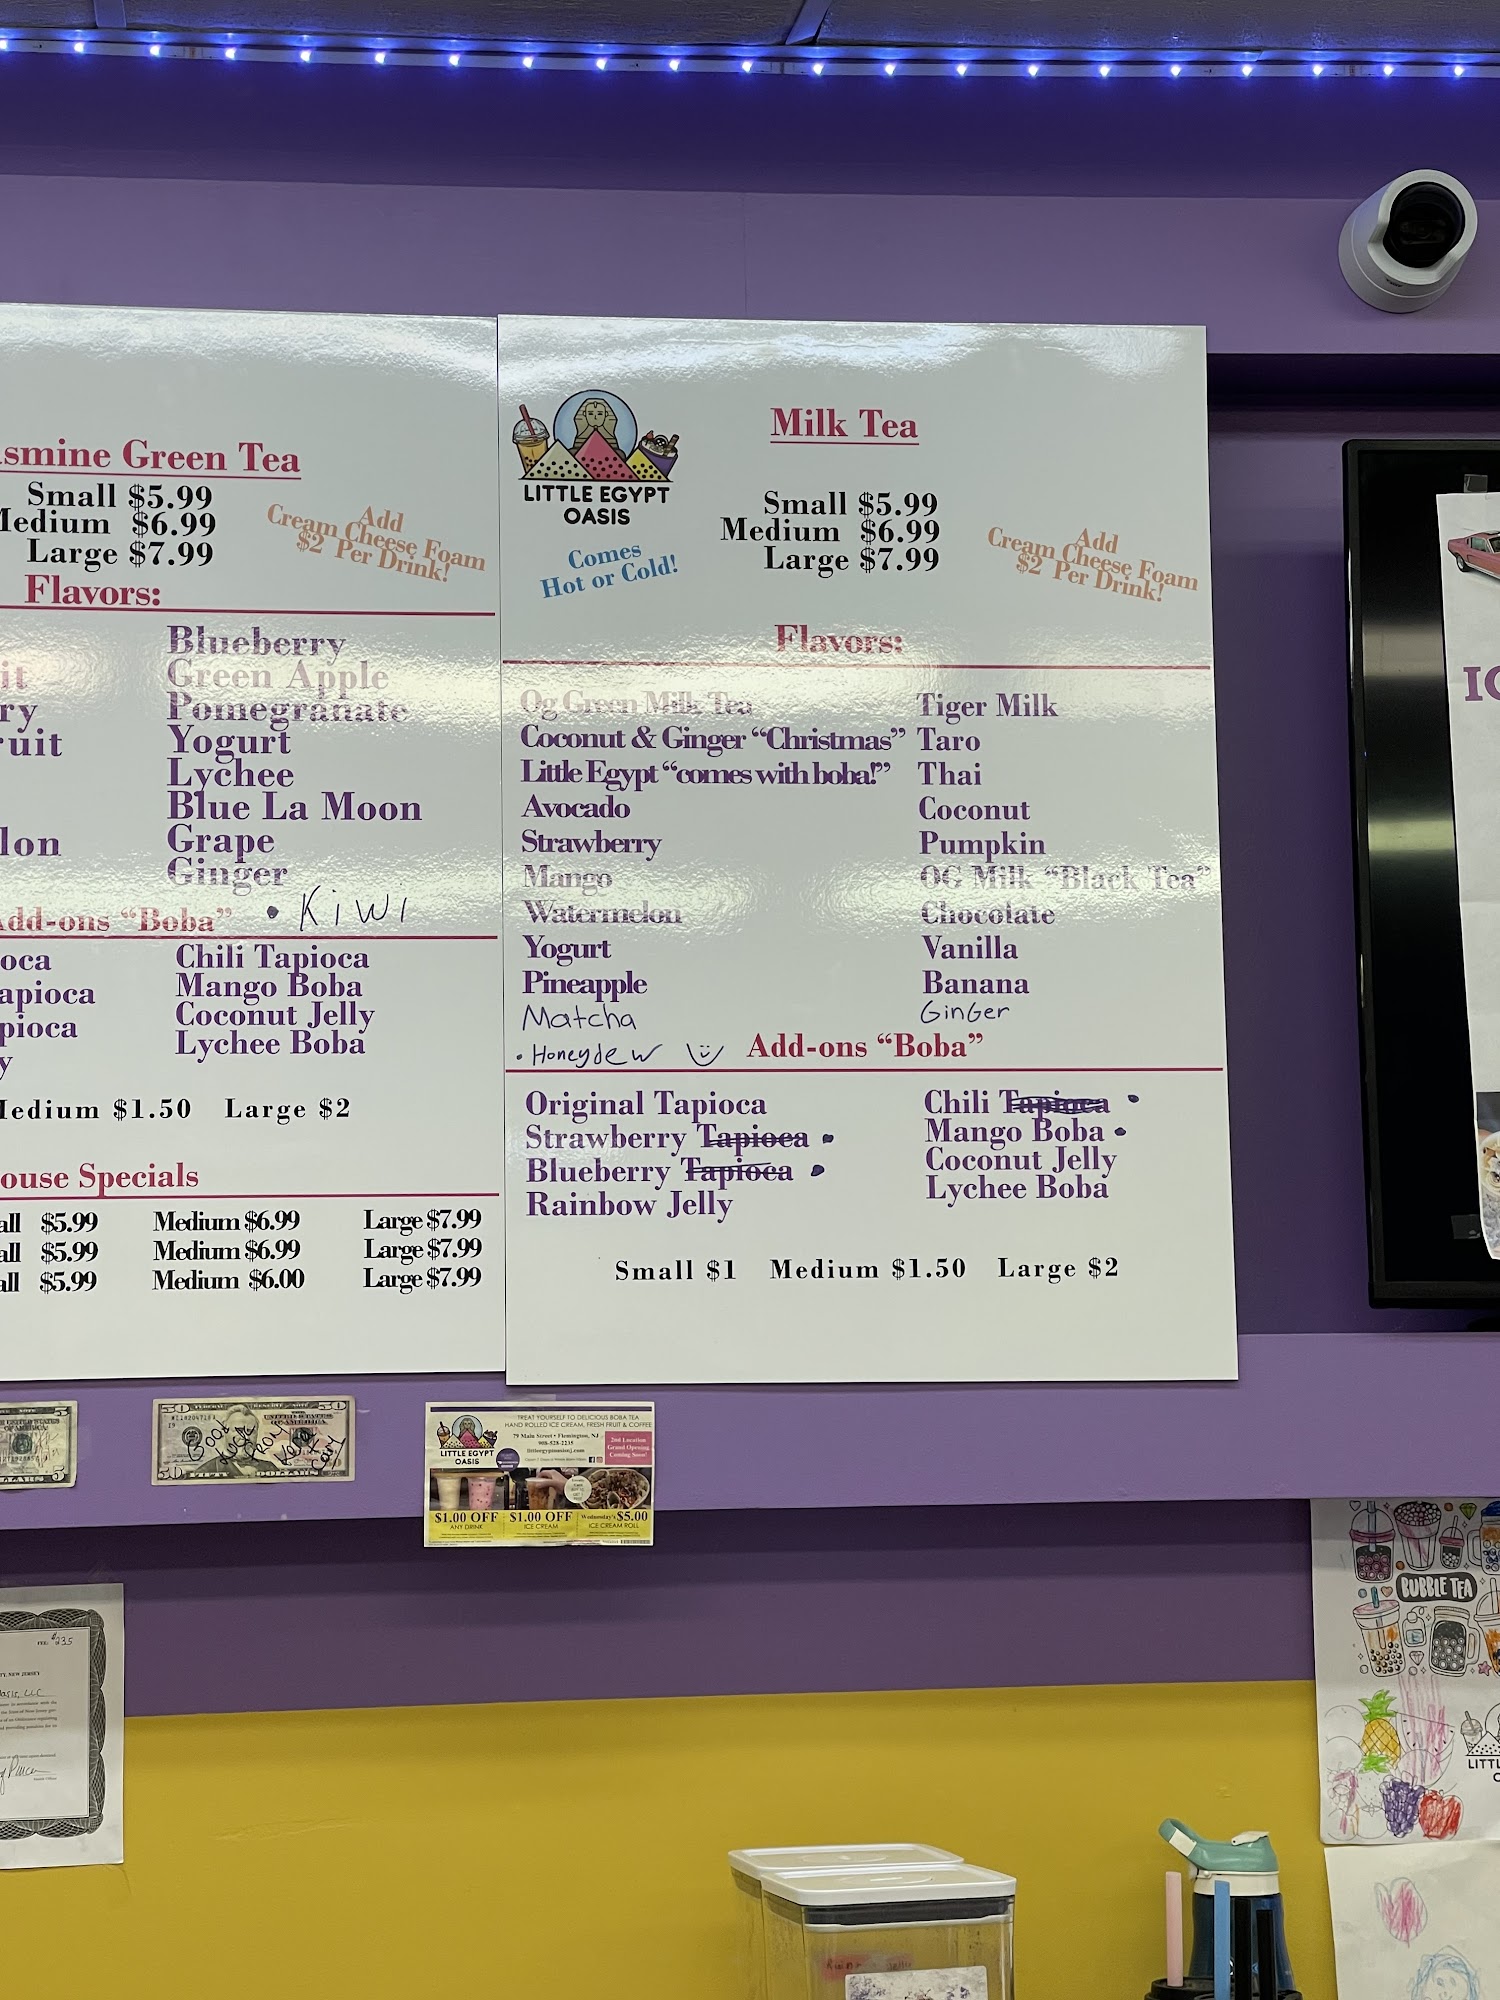 smine Green Tea
Small $5.99
Medium $6.99
Large $7.99
Add
Cream Cheese Foam
$2 Per Drink!
Flavors:
Blueberry
Green Apple
Pomegranate
Yogurt
Lychee
Blue La Moon
Grape
Ginger
• Kiwi
it
ry
ruit
lon
Add-ons "Boba"
oca
apioca
pioca
y
Chili Tapioca
Mango Boba
Coconut Jelly
Lychee Boba
Medium $1.50 Large $2
ouse Specials
all $5.99 Medium $6.99 Large $7.99
all $5.99 Medium $6.99 Large $7.99
all $5.99 Medium $6.00 Large $7.99
LITTLE EGYPT
OASIS
Comes
Hot or Cold!
Milk Tea
Small $5.99
Medium $6.99
Large $7.99
Add
Cream Cheese Foam
$2 Per Drink!
Flavors:
Og Green Milk Tea
Coconut & Ginger "Christmas"
Little Egypt "comes with boba!"
Avocado
Strawberry
Mango
Watermelon
Yogurt
Pineapple
Matcha
• Honeydew
Tiger Milk
Taro
Thai
Coconut
Pumpkin
OG Milk "Black Tea"
Chocolate
Vanilla
Banana
GinGer
Add-ons "Boba"
Original Tapioca
Strawberry Tapioca •
Blueberry Tapioca •
Rainbow Jelly
Chili Tapioca •
Mango Boba •
Coconut Jelly
Lychee Boba
Small $1 Medium $1.50 Large $2
IC
50
50
Good
Luck
FIFTY DOLLARS
5
TREAT YOURSELF TO DELICIOUS BOBA TEA
HAND ROLLED ICE CREAM, FRESH FRUIT & COFFEE
79 Main Street • Flemington, NJ
908-528-2235
littleegyptoasisnj.com
2nd Location
Grand Opening
Coming Soon!
LITTLE EGYPT
OASIS
$1.00 OFF
ANY DRINK
$1.00 OFF
ICE CREAM
Wednesday's $5.00
ICE CREAM ROLL
FEE: $235
TY, NEW JERSEY
BUBBLE TEA
LITTL